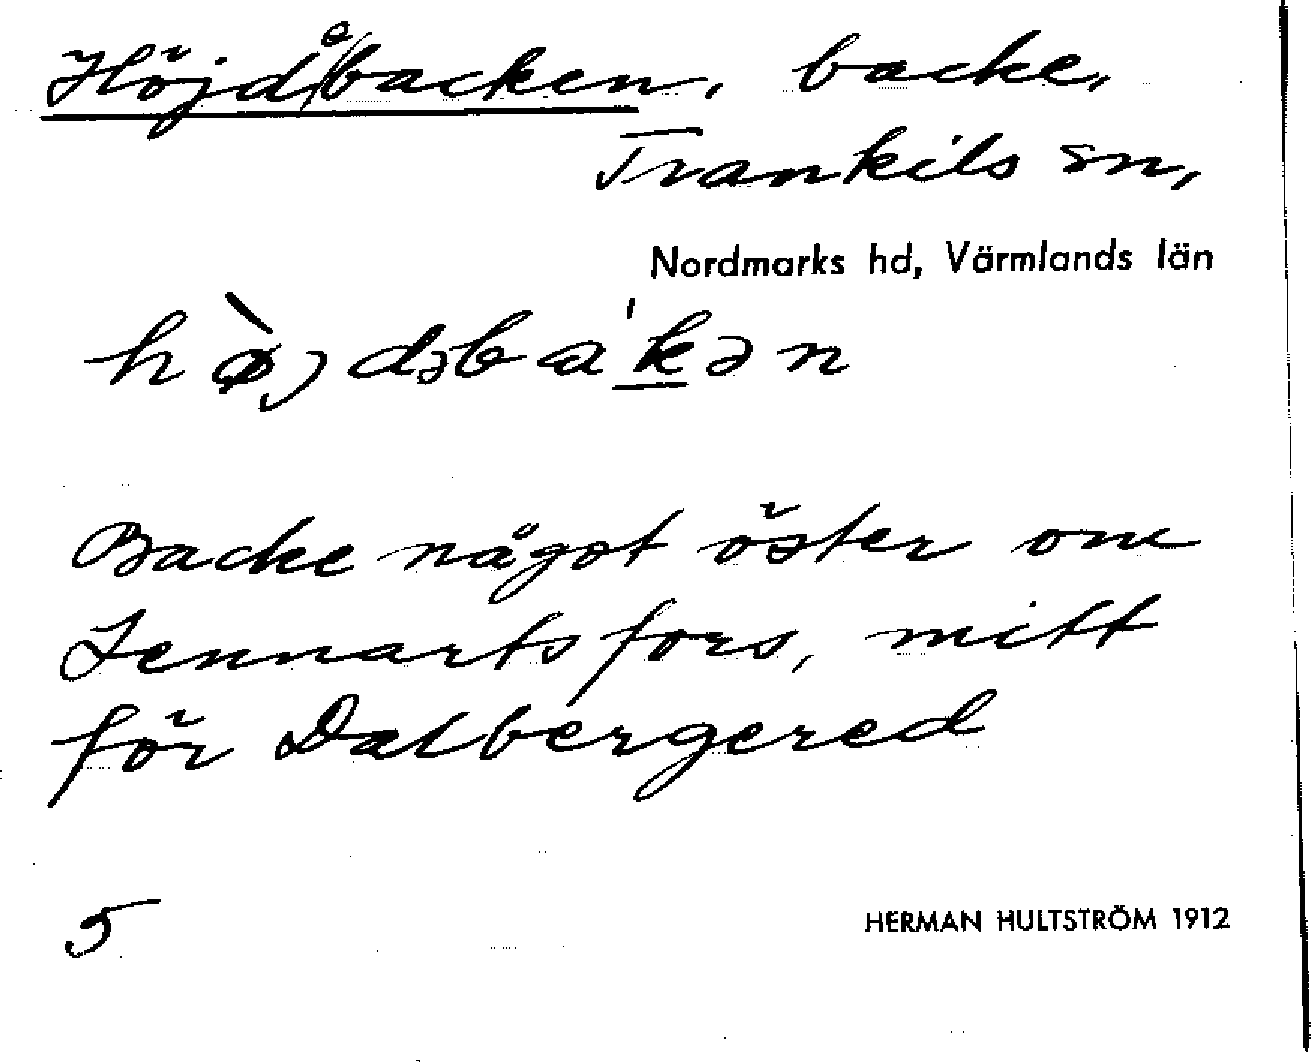 Höjdebacken, backe,
Trankils sn,
Nordmarks hd, Värmlands län
hø̀jdəba'kən
Backe något öster om
Lennartsfors, mitt
för Dalbergered
5
HERMAN HULTSTRÖM 1912